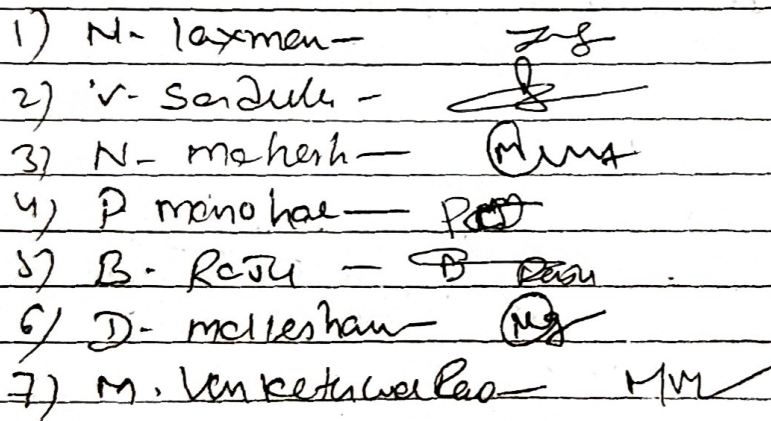 1) N- laxman -
2) V- Sardulu -
3) N- mahesh -
4) P manohar -
5) B. Raju - B Raju
6) D- mallesham -
7) M. Venkateswa Rao -